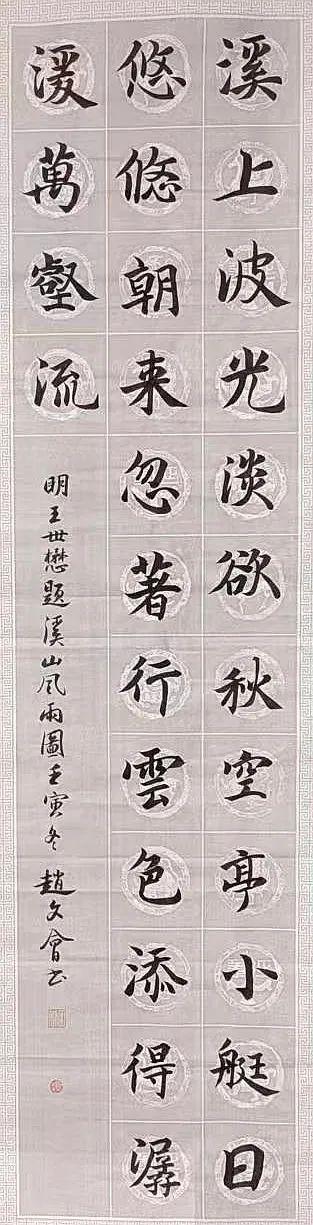 溪上波光淡欲秋空亭小艇日
悠悠朝来忽著行雲色添得潺
湲萬壑流
明王世懋題溪山風雨圖壬寅冬趙文會书